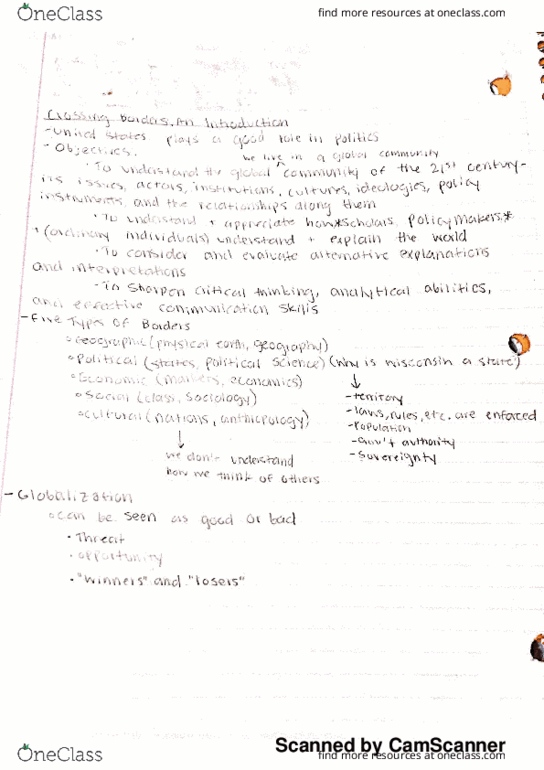 OneClass
find more resources at oneclass.com
Crossing Borders, An Introduction
- United States plays a good role in politics
- Objectives.
we live in a global community
• To understand the global community of the 21st century-
its issues, actors, institutions, cultures, ideologies, policy
instruments, and the relationships along them
• To understand + appreciate how *scholars, policymakers,*
+ (ordinary individuals) understand + explain the world
• To consider and evaluate alternative explanations
and interpretations
• To sharpen critical thinking, analytical abilities,
and effective communication skills
- Five Types of Borders
◦ Geographic (physical earth, geography)
◦ Political (states, political science) (Why is wisconsin a state?)
◦ Economic (markets, economics)
◦ Social (class, sociology)
◦ Cultural (nations, anthropology)
↓
- territory
- laws, rules, etc. are enforced
- Population
- Gov't authority
- Sovereignty
↓
we don't understand
how we think of others
- Globalization
◦ can be seen as good or bad
• Threat
• opportunity
• "winners" and "losers"
Scanned by CamScanner
OneClass
find more resources at oneclass.com